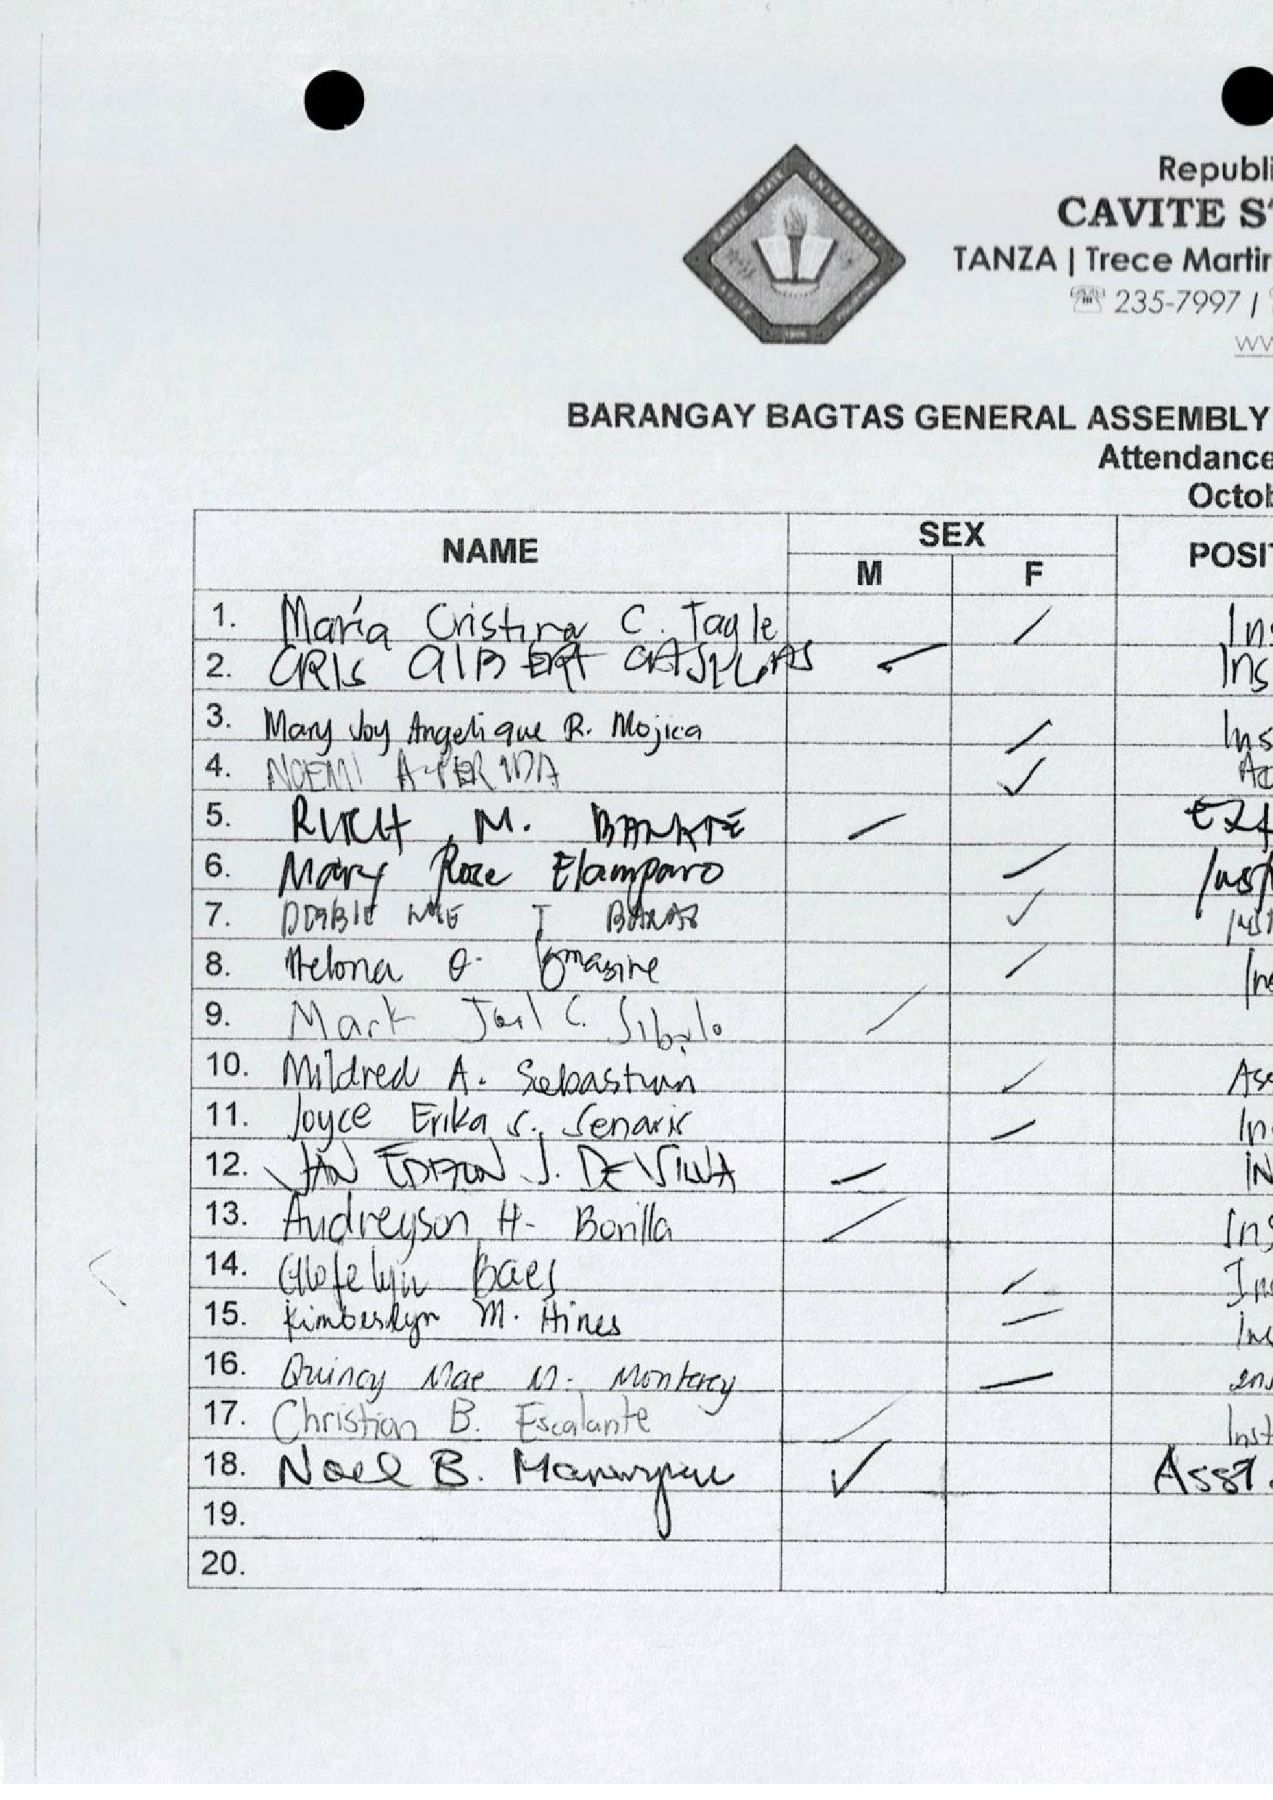 Republi
CAVITE S
TANZA | Trece Martir
235-7997 |
BARANGAY BAGTAS GENERAL ASSEMBLY
Attendance
Octob
NAME SEX POSIT
M F
1. Maria Cristina C. Tagle Ins
2. CRIS ALBERT Ins
3. Mary Joy Angelique R. Mojica Ins
4. NOEMI A. PERIDA Ac
5. M. BANATE
6. Mary Rose Elamparo Inst
7. MAE T. Inst
8. Ins
9. Mark C. Sibulo
10. Mildred A. Sebastian Ass
11. Joyce Erika S. Senaris In
12. JAN EDISON J. DE VILLA IN
13. Audreyson H. Bonilla Ins
14. Glofelyn Baes Ins
15. Kimberlyn M. Hines Ins
16. Quincy Mae M. Monterey ins
17. Christian B. Escalante Inst
18. Noel B. Asst.
19.
20.